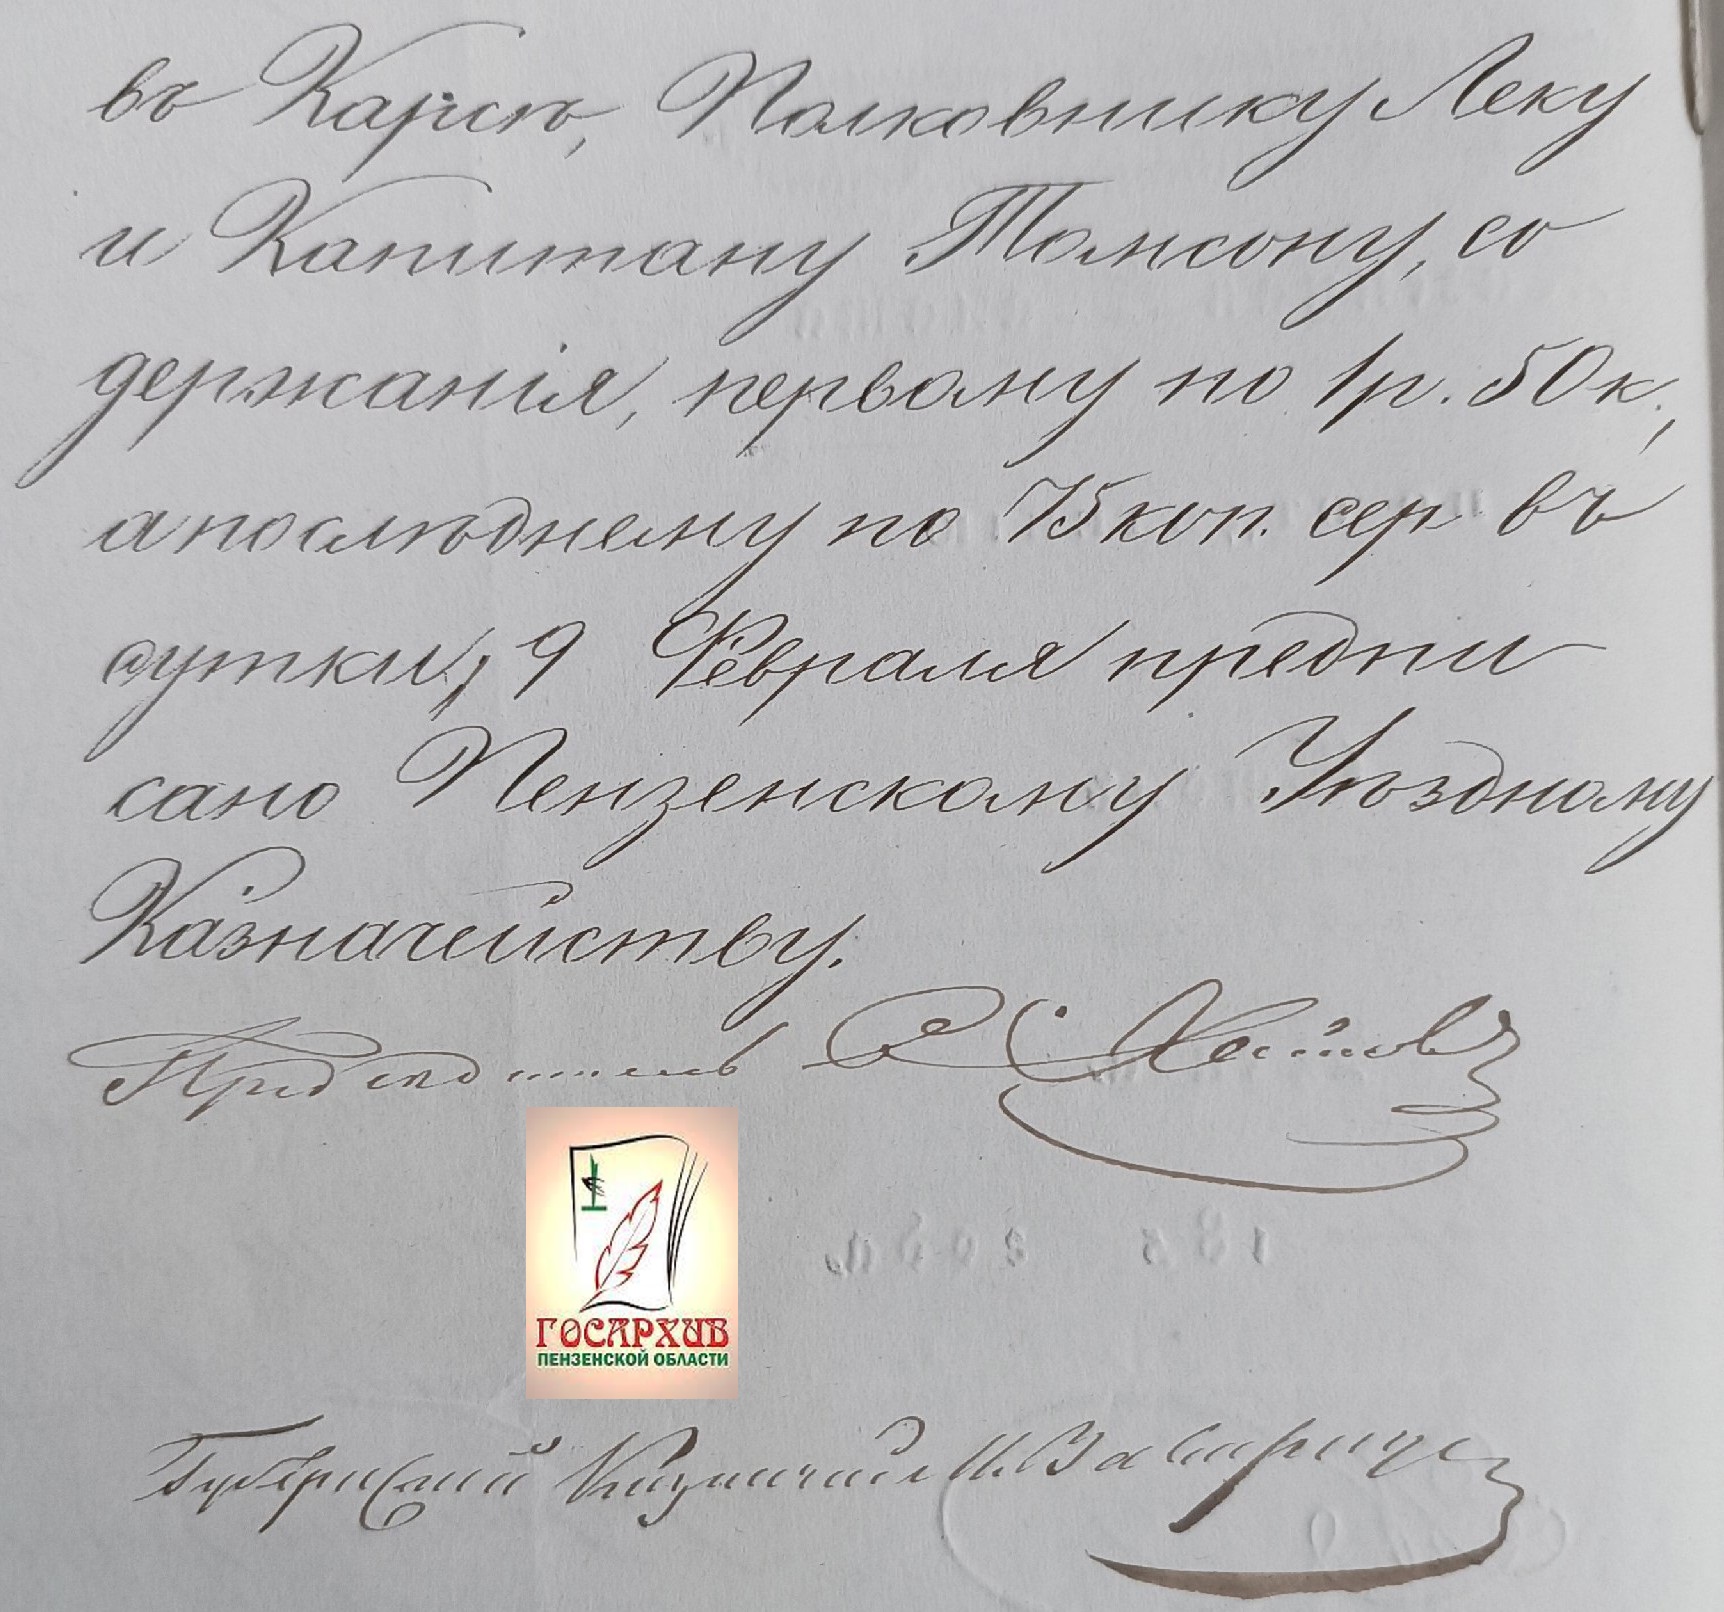 въ Карсѣ, Полковнику Леку
и Капитану Томсону, со
держанія, первому по 1 р. 50 к.,
а послѣднему по 75 коп. сер въ
сутки, 9 Февраля предпи
сано Пензенскому Уѣздному
Казначейству.
Предсѣдатель
ГОСАРХИВ
ПЕНЗЕНСКОЙ ОБЛАСТИ
Губернский Казначей